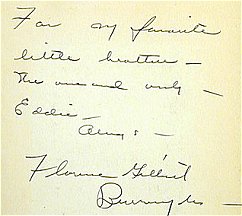 For my favorite
little brother –
The one and only –
Eddie –
Always –
Florence Gilbert
Burroughs –